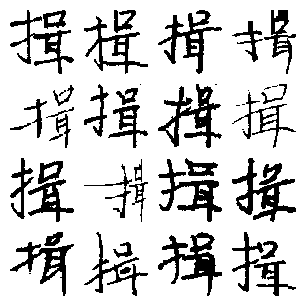 揖揖揖揖
揖揖揖揖
揖揖揖揖
揖揖揖揖